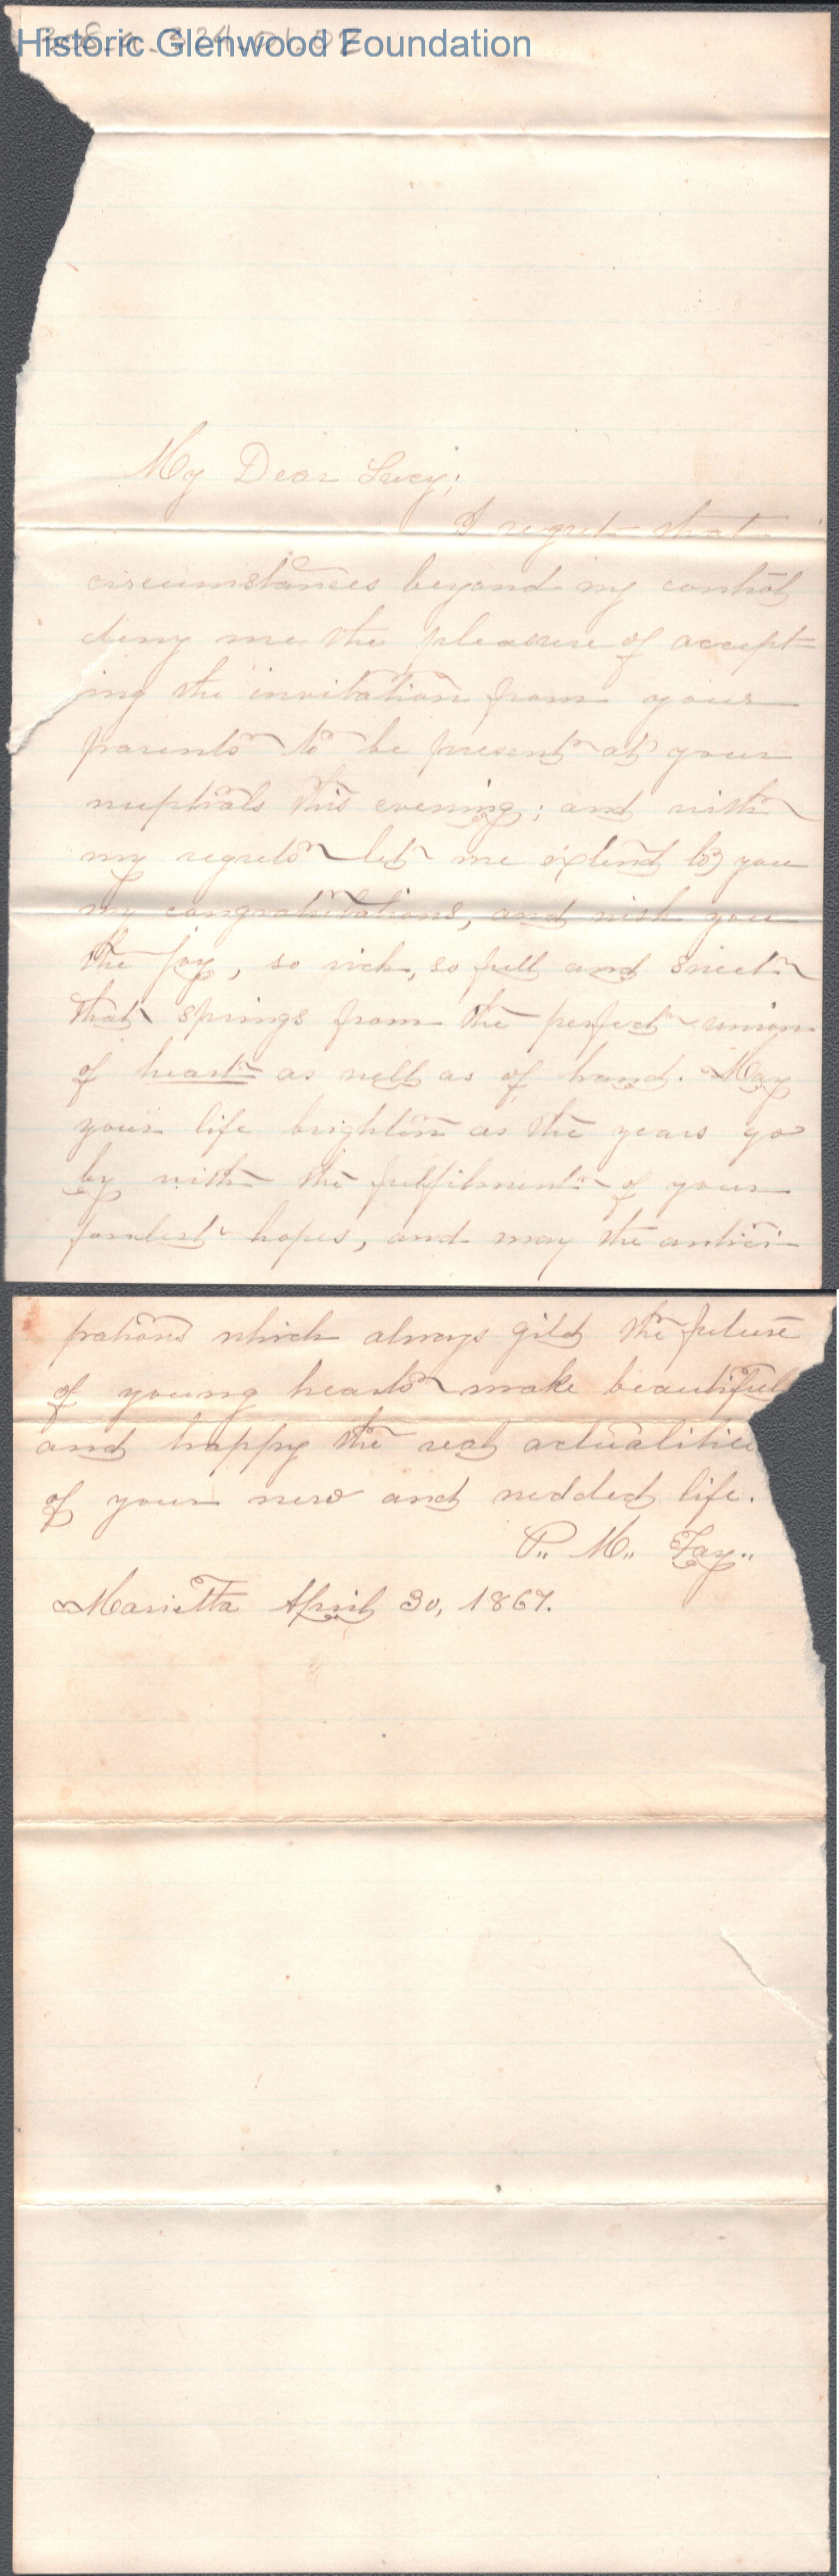 Historic Glenwood Foundation
My Dear Lucy;
I regret that
circumstances beyond my control
deny me the pleasure of accept=
ing the invitation from your
parents to be present at your
nuptials this evening; and with
my regrets let me extend to you
my congratulations, and wish you
the joy, so rich, so full and sweet
that springs from the perfect union
of heart as well as of hand. May
your life brighten as the years go
by with the fulfilment of your
fondest hopes, and may the antici-
pations which always gild the future
of young hearts make beautiful
and happy the real actualities
of your new and wedded life.
P.. M.. Fay..
Marietta April 30, 1867.